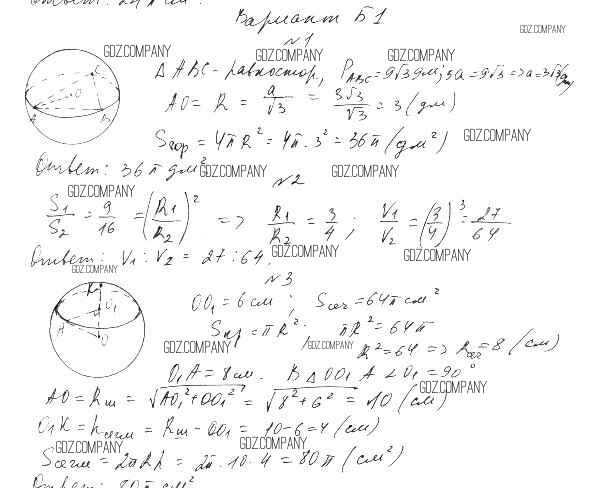 Ответ: 24π см².
Вариант Б1
GDZ.COMPANY
№1
GDZ.COMPANY GDZ.COMPANY GDZ.COMPANY
ΔABC - равностор, P_ABC = 9√3 дм; 3a = 9√3 => a = 3√3 (дм)
AO = R = a/√3 = 3√3/√3 = 3 (дм)
Sпов = 4πR² = 4π·3² = 36π (дм²) GDZ.COMPANY
Ответ: 36π дм² GDZ.COMPANY GDZ.COMPANY
№2
GDZ.COMPANY
S₁/S₂ = 9/16 = (R₁/R₂)² => R₁/R₂ = 3/4; V₁/V₂ = (3/4)³ = 27/64
GDZ.COMPANY GDZ.COMPANY
Ответ: V₁:V₂ = 27:64.
GDZ.COMPANY
№3
OO₁ = 6 см; Sсеч = 64π см²
Sкр = πR²; πR² = 64π
GDZ.COMPANY GDZ.COMPANY R² = 64 => Rсеч = 8 (см)
O₁A = 8 см. В ΔOO₁A ∠O₁ = 90°
GDZ.COMPANY
AO = Rш = √AO₁²+OO₁² = √8²+6² = 10 (см)
O₁K = hсегм = Rш - OO₁ = 10-6 = 4 (см)
GDZ.COMPANY GDZ.COMPANY
Sсегм = 2πRh = 2π·10·4 = 80π (см²)
Ответ: 80π см²